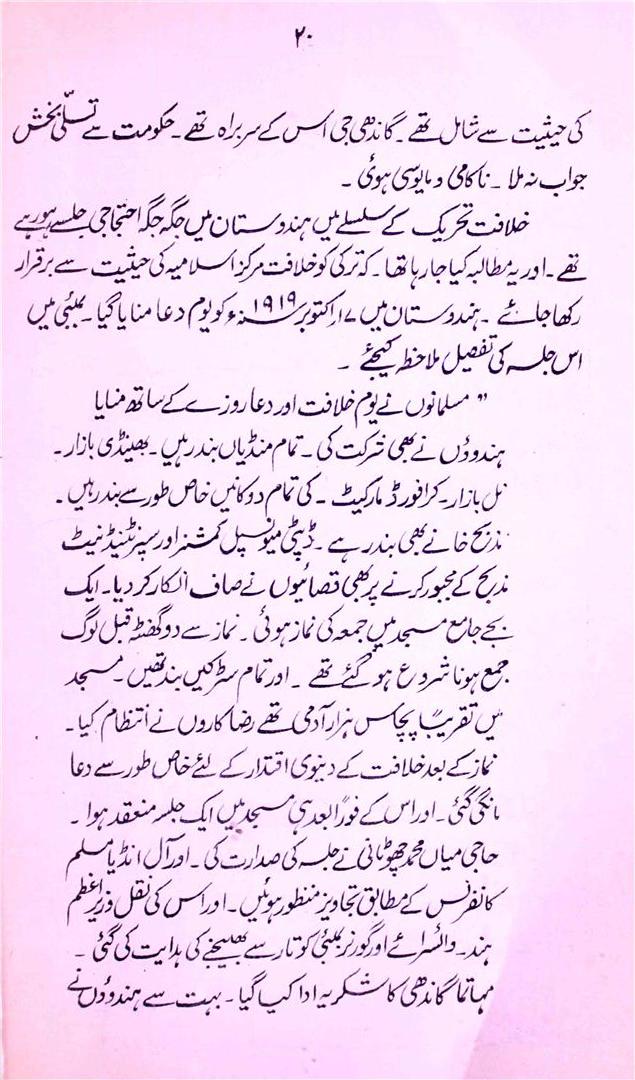 ۲۰
کی حیثیت سے شامل تھے ۔ گاندھی جی اس کے سربراہ تھے ۔ حکومت سے تسلّی بخش
جواب نہ ملا ۔ ناکامی و مایوسی ہوئی ۔
خلافت تحریک کے سلسلے میں ہندوستان میں جگہ جگہ احتجاجی جلسے ہو رہے
تھے ۔ اور یہ مطالبہ کیا جا رہا تھا ۔ کہ ترکی کو خلافت مرکز اسلامیہ کی حیثیت سے برقرار
رکھا جائے ۔ ہندوستان میں ۱۷ اکتوبر ۱۹۱۹ء کو یوم دعا منایا گیا ۔ بمبئی میں
اس جلسہ کی تفصیل ملاحظہ کیجئے ۔
" مسلمانوں نے یوم خلافت اور دعا روزے کے ساتھ منایا
ہندوؤں نے بھی شرکت کی ۔ تمام منڈیاں بند رہیں ۔ بھینڈی بازار ۔
نل بازار ۔ کرافورڈ مارکیٹ ۔ کی تمام دوکانیں خاص طور سے بند رہیں ۔
مذبح خانے بھی بند رہے ۔ ڈپٹی میونسپل کمشنر اور سپرنٹینڈنیٹ
مذبح کے مجبور کرنے پر بھی قصائیوں نے صاف انکار کر دیا ۔ ایک
بجے جامع مسجد میں جمعہ کی نماز ہوئی ۔ نماز سے دو گھنٹہ قبل لوگ
جمع ہونا شروع ہو گئے تھے ۔ اور تمام سڑکیں بند تھیں ۔ مسجد
میں تقریباً پچاس ہزار آدمی تھے رضا کاروں نے انتظام کیا ۔
نماز کے بعد خلافت کے دنیوی اقتدار کے لئے خاص طور سے دعا
مانگی گئی ۔ اور اس کے فوراً بعد ہی مسجد میں ایک جلسہ منعقد ہوا ۔
حاجی میاں محمد چھوٹانی نے جلسہ کی صدارت کی ۔ اور آل انڈیا مسلم
کانفرنس کے مطابق تجاویز منظور ہوئیں ۔ اور اس کی نقل وزیر اعظم
ہند ۔ وائسرائے اور گورنر بمبئی کو تار سے بھیجنے کی ہدایت کی گئی ۔
مہاتما گاندھی کا شکریہ ادا کیا گیا ۔ بہت سے ہندوؤں نے